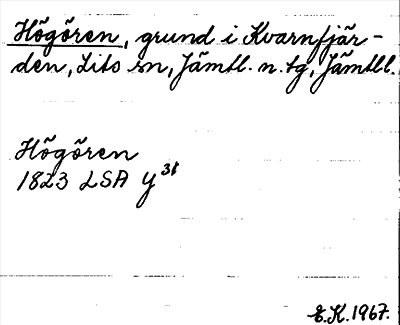 Högören, grund i Kvarnfjär-
den, Lits sn, Jämtl. n. tg, Jämtl l.
Högören
1823 LSA Y³¹
E.K. 1967.